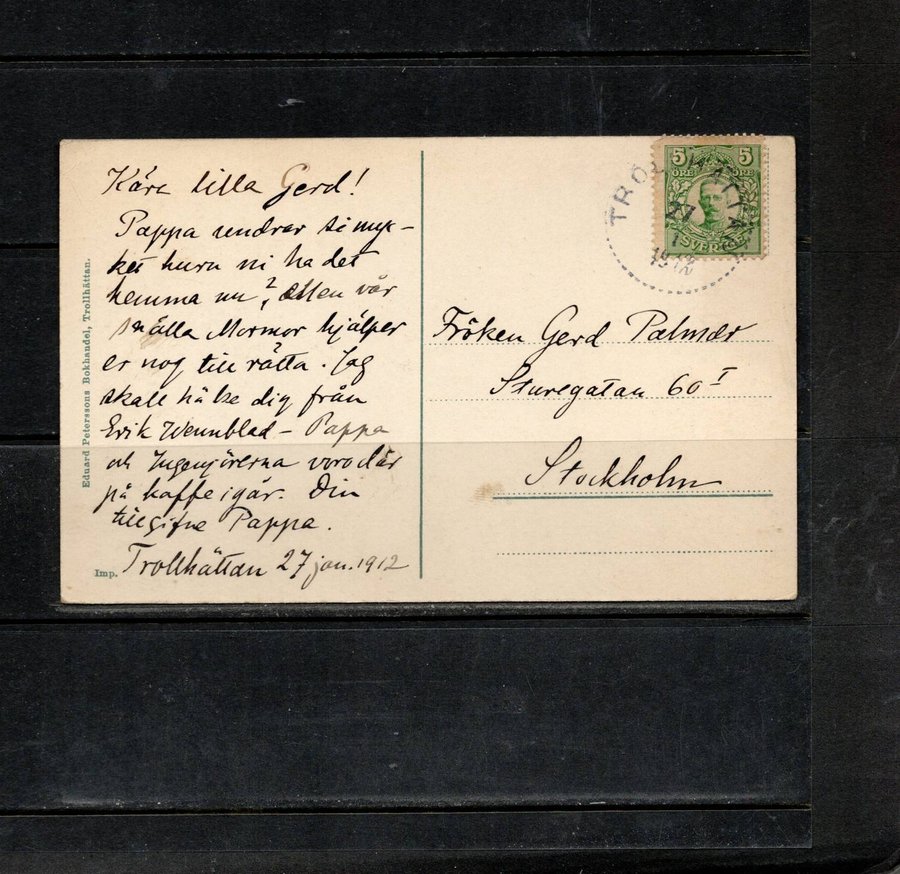 Kära lilla Gerd!
Pappa undrar så myc-
ket huru ni ha det
hemma nu? Men vår
snälla Mormor hjälper
er nog till rätta. Jag
skall hälsa dig från
Erik Wennblad - Pappa
och Ingenjörerna voro där
på kaffe igår. Din
tillgifne Pappa.
Trollhättan 27 jan. 1912
Eduard Peterssons Bokhandel, Trollhättan.
Imp.
5 5
ÖRE ÖRE
SVERIGE
TROLLHÄTTAN
27
1
1912
Fröken Gerd Palmær
Sturegatan 60 I
Stockholm